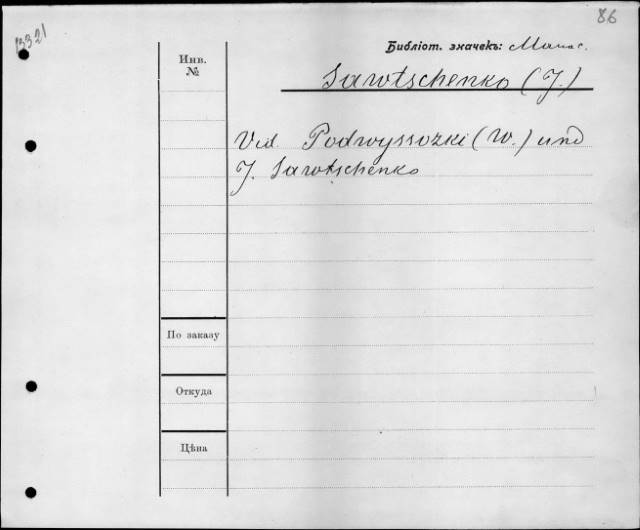 86
3321
Библіот. значекъ:
Инв.
№
Sawtschenko (J.)
Vid. Podwyssozki (W.) und
J. Sawtschenko
По заказу
Откуда
Цѣна